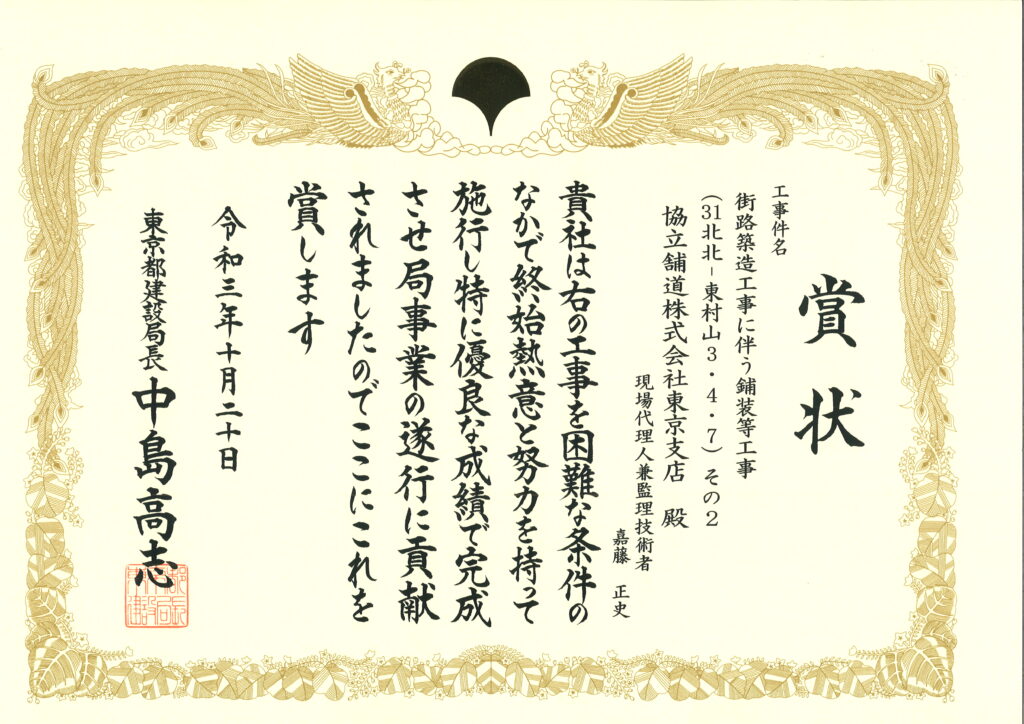 賞状
工事件名
街路築造工事に伴う舗装等工事
（31北北－東村山3・4・7）その2
協立舗道株式会社東京支店 殿
現場代理人兼監理技術者
嘉藤 正史
貴社は右の工事を困難な条件の
なかで終始熱意と努力を持って
施行し特に優良な成績で完成
させ局事業の遂行に貢献
されましたのでここにこれを
賞します
令和三年十月二十日
東京都建設局長 中島高志